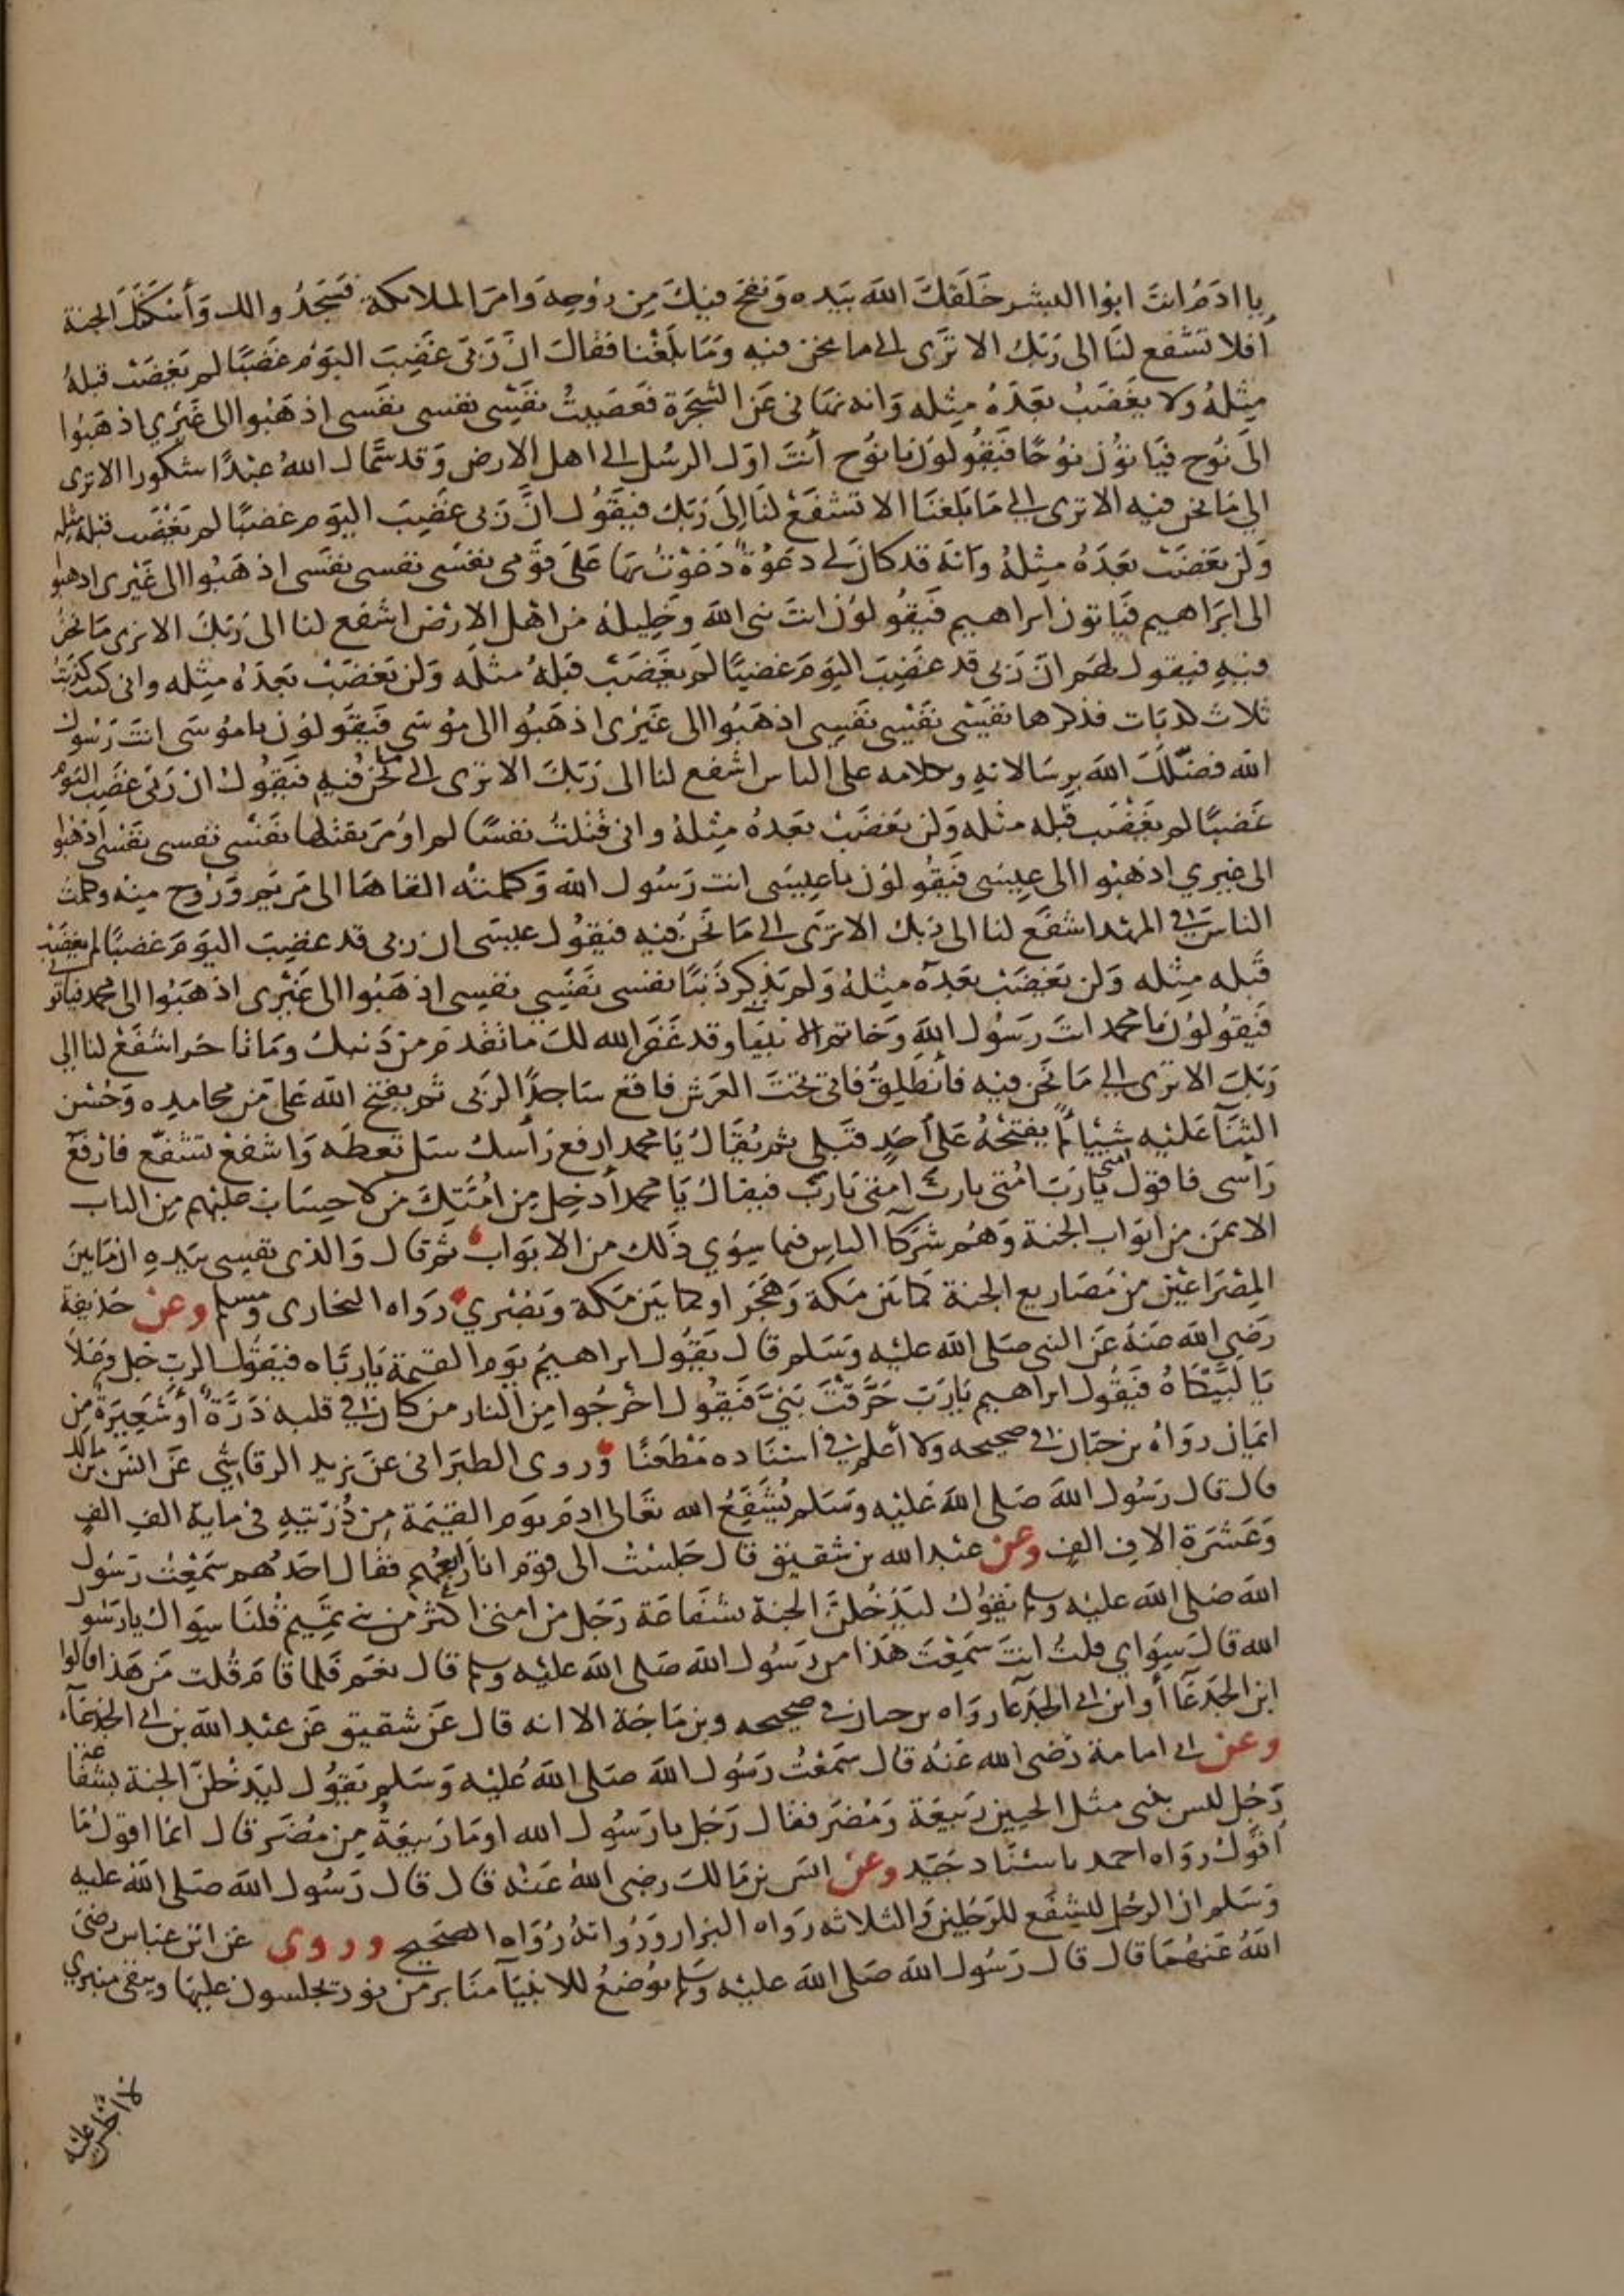 يا ادم انت ابوا البشر خلقك الله بيده ونفخ فيك من روحه وامر الملائكة فسجدوا لك وأسكنك الجنة
أفلا تشفع لنا الى ربك الا ترى الى ما نحن فيه وما بلغنا فقال ان ربى غضب اليوم غضبا لم يغضب قبله
مثله ولا يغضب بعده مثله وانه نهانى عن الشجرة فعصيت نفسى نفسى نفسى اذهبوا الى غيري اذهبوا
الى نوح فياتون نوحا فيقولون يا نوح أنت اول الرسل الى اهل الارض وقد سماك الله عبدا شكورا الا ترى
الى ما نحن فيه الا ترى الى ما بلغنا الا تشفع لنا الى ربك فيقول ان ربى غضب اليوم غضبا لم يغضب قبله مثله
ولن يغضب بعده مثله وانه قد كان لى دعوة دعوت بها على قومى نفسى نفسى نفسى اذهبوا الى غيرى اذهبوا
الى ابراهيم فياتون ابراهيم فيقولون انت نبى الله وخليله من اهل الارض اشفع لنا الى ربك الا ترى ما نحن
فيه فيقول لهم ان ربى قد غضب اليوم غضبا لم يغضب قبله مثله ولن يغضب بعده مثله وانى كنت كذبت
ثلاث كذبات فذكرها نفسى نفسى نفسى اذهبوا الى غيرى اذهبوا الى موسى فيقولون يا موسى انت رسول
الله فضلك الله برسالاته وكلامه على الناس اشفع لنا الى ربك الا ترى الى ما نحن فيه فيقول ان ربى غضب اليوم
غضبا لم يغضب قبله مثله ولن يغضب بعده مثله وانى قتلت نفسا لم اومر بقتلها نفسى نفسى نفسى اذهبوا
الى غيري اذهبوا الى عيسى فيقولون يا عيسى انت رسول الله وكلمته القاها الى مريم وروح منه وكلمت
الناس فى المهد اشفع لنا الى ربك الا ترى الى ما نحن فيه فيقول عيسى ان ربى قد غضب اليوم غضبا لم يغضب
قبله مثله ولن يغضب بعده مثله ولم يذكر ذنبا نفسى نفسي نفسى اذهبوا الى غيرى اذهبوا الى محمد فياتونى
فيقولون يا محمد انت رسول الله وخاتم الانبياء وقد غفر الله لك ما تقدم من ذنبك وما تاخر اشفع لنا الى
ربك الا ترى الى ما نحن فيه فأنطلق فاتى تحت العرش فاقع ساجدا لربى ثم يفتح الله على من محامده وحسن
الثناء عليه شيئا لم يفتحه على أحد قبلى ثم يقال يا محمد ارفع رأسك سل تعطه واشفع تشفع فارفع
رأسى فاقول امتى يا رب امتى يا رب امتى يا رب فيقال يا محمد أدخل من امتك من لا حساب عليهم من الباب
الايمن من ابواب الجنة وهم شركا الناس فيما سوي ذلك من الابواب ثم قال والذى نفسى بيده ان ما بين
المصراعين من مصاريع الجنة كما بين مكة وهجر او كما بين مكة وبصري رواه البخارى ومسلم وعن حذيفة
رضى الله عنه عن النبى صلى الله عليه وسلم قال يقول ابراهيم يوم القيمة يا رباه فيقول الرب جل وعلا
يا لبيكاه فيقول ابراهيم يا رب حرقت بنى فيقول اخرجوا من النار من كان فى قلبه ذرة أو شعيرة من
ايمان رواه بن حبان فى صحيحه ولا أعلم فى اسناده مطعنا وروى الطبرانى عن يزيد الرقاشى عن انس بن مالك
قال قال رسول الله صلى الله عليه وسلم يشفع الله تعالى ادم يوم القيمة من ذريته فى ماية الف الف
وعشرة الاف الف وعن عبد الله بن شقيق قال جلست الى قوم انا رابعهم فقال احدهم سمعت رسول
الله صلى الله عليه وسلم يقول ليدخلن الجنة بشفاعة رجل من امتى اكثر من بنى تميم قلنا سواك يا رسول
الله قال سواي قلت انت سمعت هذا من رسول الله صلى الله عليه وسلم قال نعم فلما قام قلت من هذا قالوا
ابن الجدعا أو ابن ابى الجدعا رواه بن حبان فى صحيحه وبن ماجة الا انه قال عن شقيق عن عبد الله بن ابى الجدعاء
وعن ابى امامة رضى الله عنه قال سمعت رسول الله صلى الله عليه وسلم يقول ليدخلن الجنة بشفاعة
رجل ليس بنبى مثل الحيين ربيعة ومضر فقال رجل يا رسول الله اوما ربيعة من مضر قال انما اقول ما
اقول رواه احمد باسناد جيد وعن انس بن مالك رضى الله عنه قال قال رسول الله صلى الله عليه
وسلم ان الرجل ليشفع للرجلين والثلاثه رواه البزار ورواته رواه الصحيح وروى عن ابن عباس رضى
الله عنهما قال قال رسول الله صلى الله عليه وسلم يوضع للانبيا منابر من نور يجلسون عليها ويبقى منبري
لا اجلس عليه